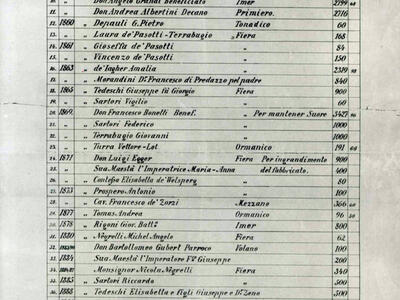 10. „ „ Don Angelo Grandi Beneficiato Imer 2799 68
11. „ „ Don Andrea Albertini Decano Primiero. 2716
12. 1860 „ Depauli G. Pietro Tonadico 60
13. „ „ Laura de' Pasotti-Terrabugio Fiera 168
14. 1861 „ Gioseffa de' Pasotti „ 84
15. „ „ Vincenzo de' Pasotti „ 150
16. 1863 „ de' Iagher Amalia „ 2319 98
17. „ „ Morandini Dr. Francesco di Predazzo pel padre „ 840
18. 1865 „ Tedeschi Giuseppe fu Giorgio Fiera 900
19. „ „ Sartori Vigilio „ 60
20. 1869. „ Don Francesco Bonetti Benef. „ Per mantener Suore 3427 96
21. „ „ Sartori Federico „ 1000
22. „ „ Terrabugio Giovanni „ 1000
23. „ „ Turra Vettore-Lot Ormanico „ 191
24. 1871 „ Don Luigi Egger Fiera Per ingrandimento 900
25. „ „ Sua Maestà l'Imperatrice Maria-Anna del fabbricato. 400
26. „ „ Contessa Elisabetta de' Welsperg „ 80
27. 1873 „ Prospero Antonio „ 100
28. „ „ Cav. Francesco de' Zorzi Mezzano „ 366
29. 1877 „ Tomas Andrea Ormanico „ 96 50
30. 1878 „ Rigoni Giov. Batta. Imer „ 800
31. 1880 „ Nëgrelli Michel Angelo Fiera „ 62
32. „ Don Bartolomeo Gubert Parroco Volano „ 100
33. 1884 „ Sua Maestà l'Imperatore Fo. Giuseppe „ 200
34. „ Monsignor Nicola Nëgrelli Fiera „ 340
35. 1885 „ Sartori Riccardo „ „ 500
36. 1888 „ Tedeschi Elisabetta e figli Giuseppe e Dr. Zeno „ 500